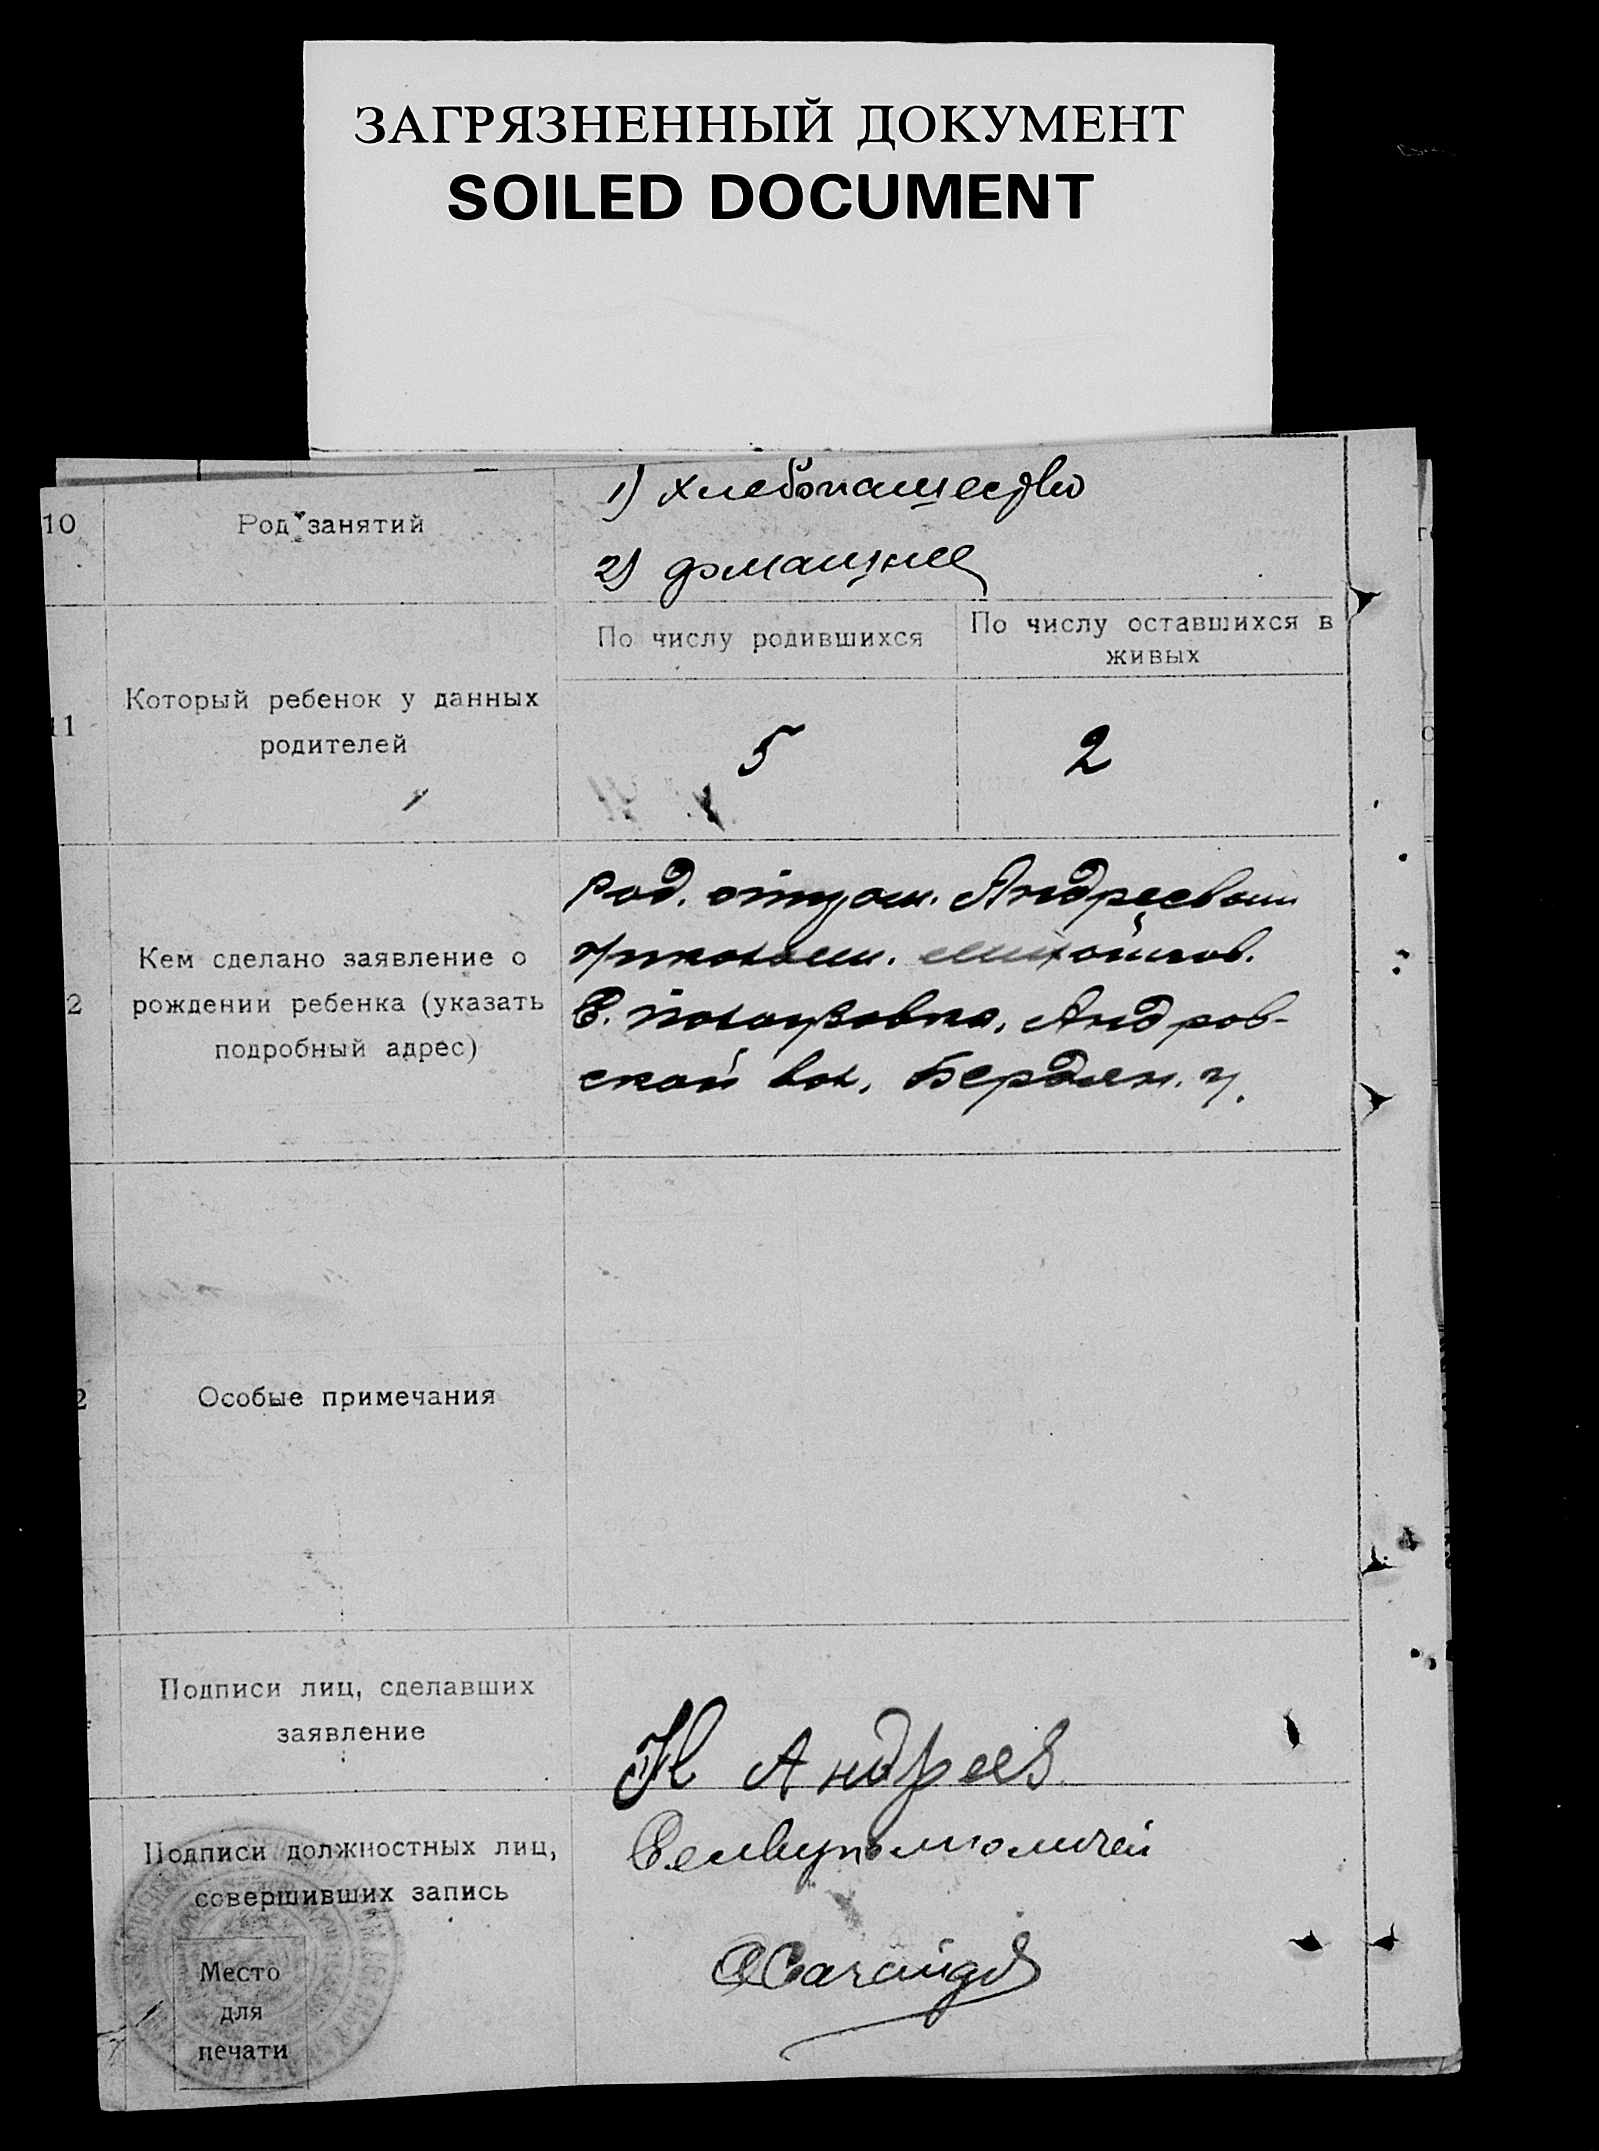 ЗАГРЯЗНЕННЫЙ ДОКУМЕНТ
SOILED DOCUMENT
10
Род занятий
1) хлебопашество
2) домашнее
11
Который ребенок у данных
родителей
По числу родившихся
По числу оставшихся в
живых
5
2
2
Кем сделано заявление о
рождении ребенка (указать
подробный адрес)
Род. отцом. Андреевым
Николаем. Михайлов.
С. Андров-
ской вол. Бердян. у.
2
Особые примечания
Подписи лиц, сделавших
заявление
Н Андреев
Подписи должностных лиц,
совершивших запись
Место
для
печати